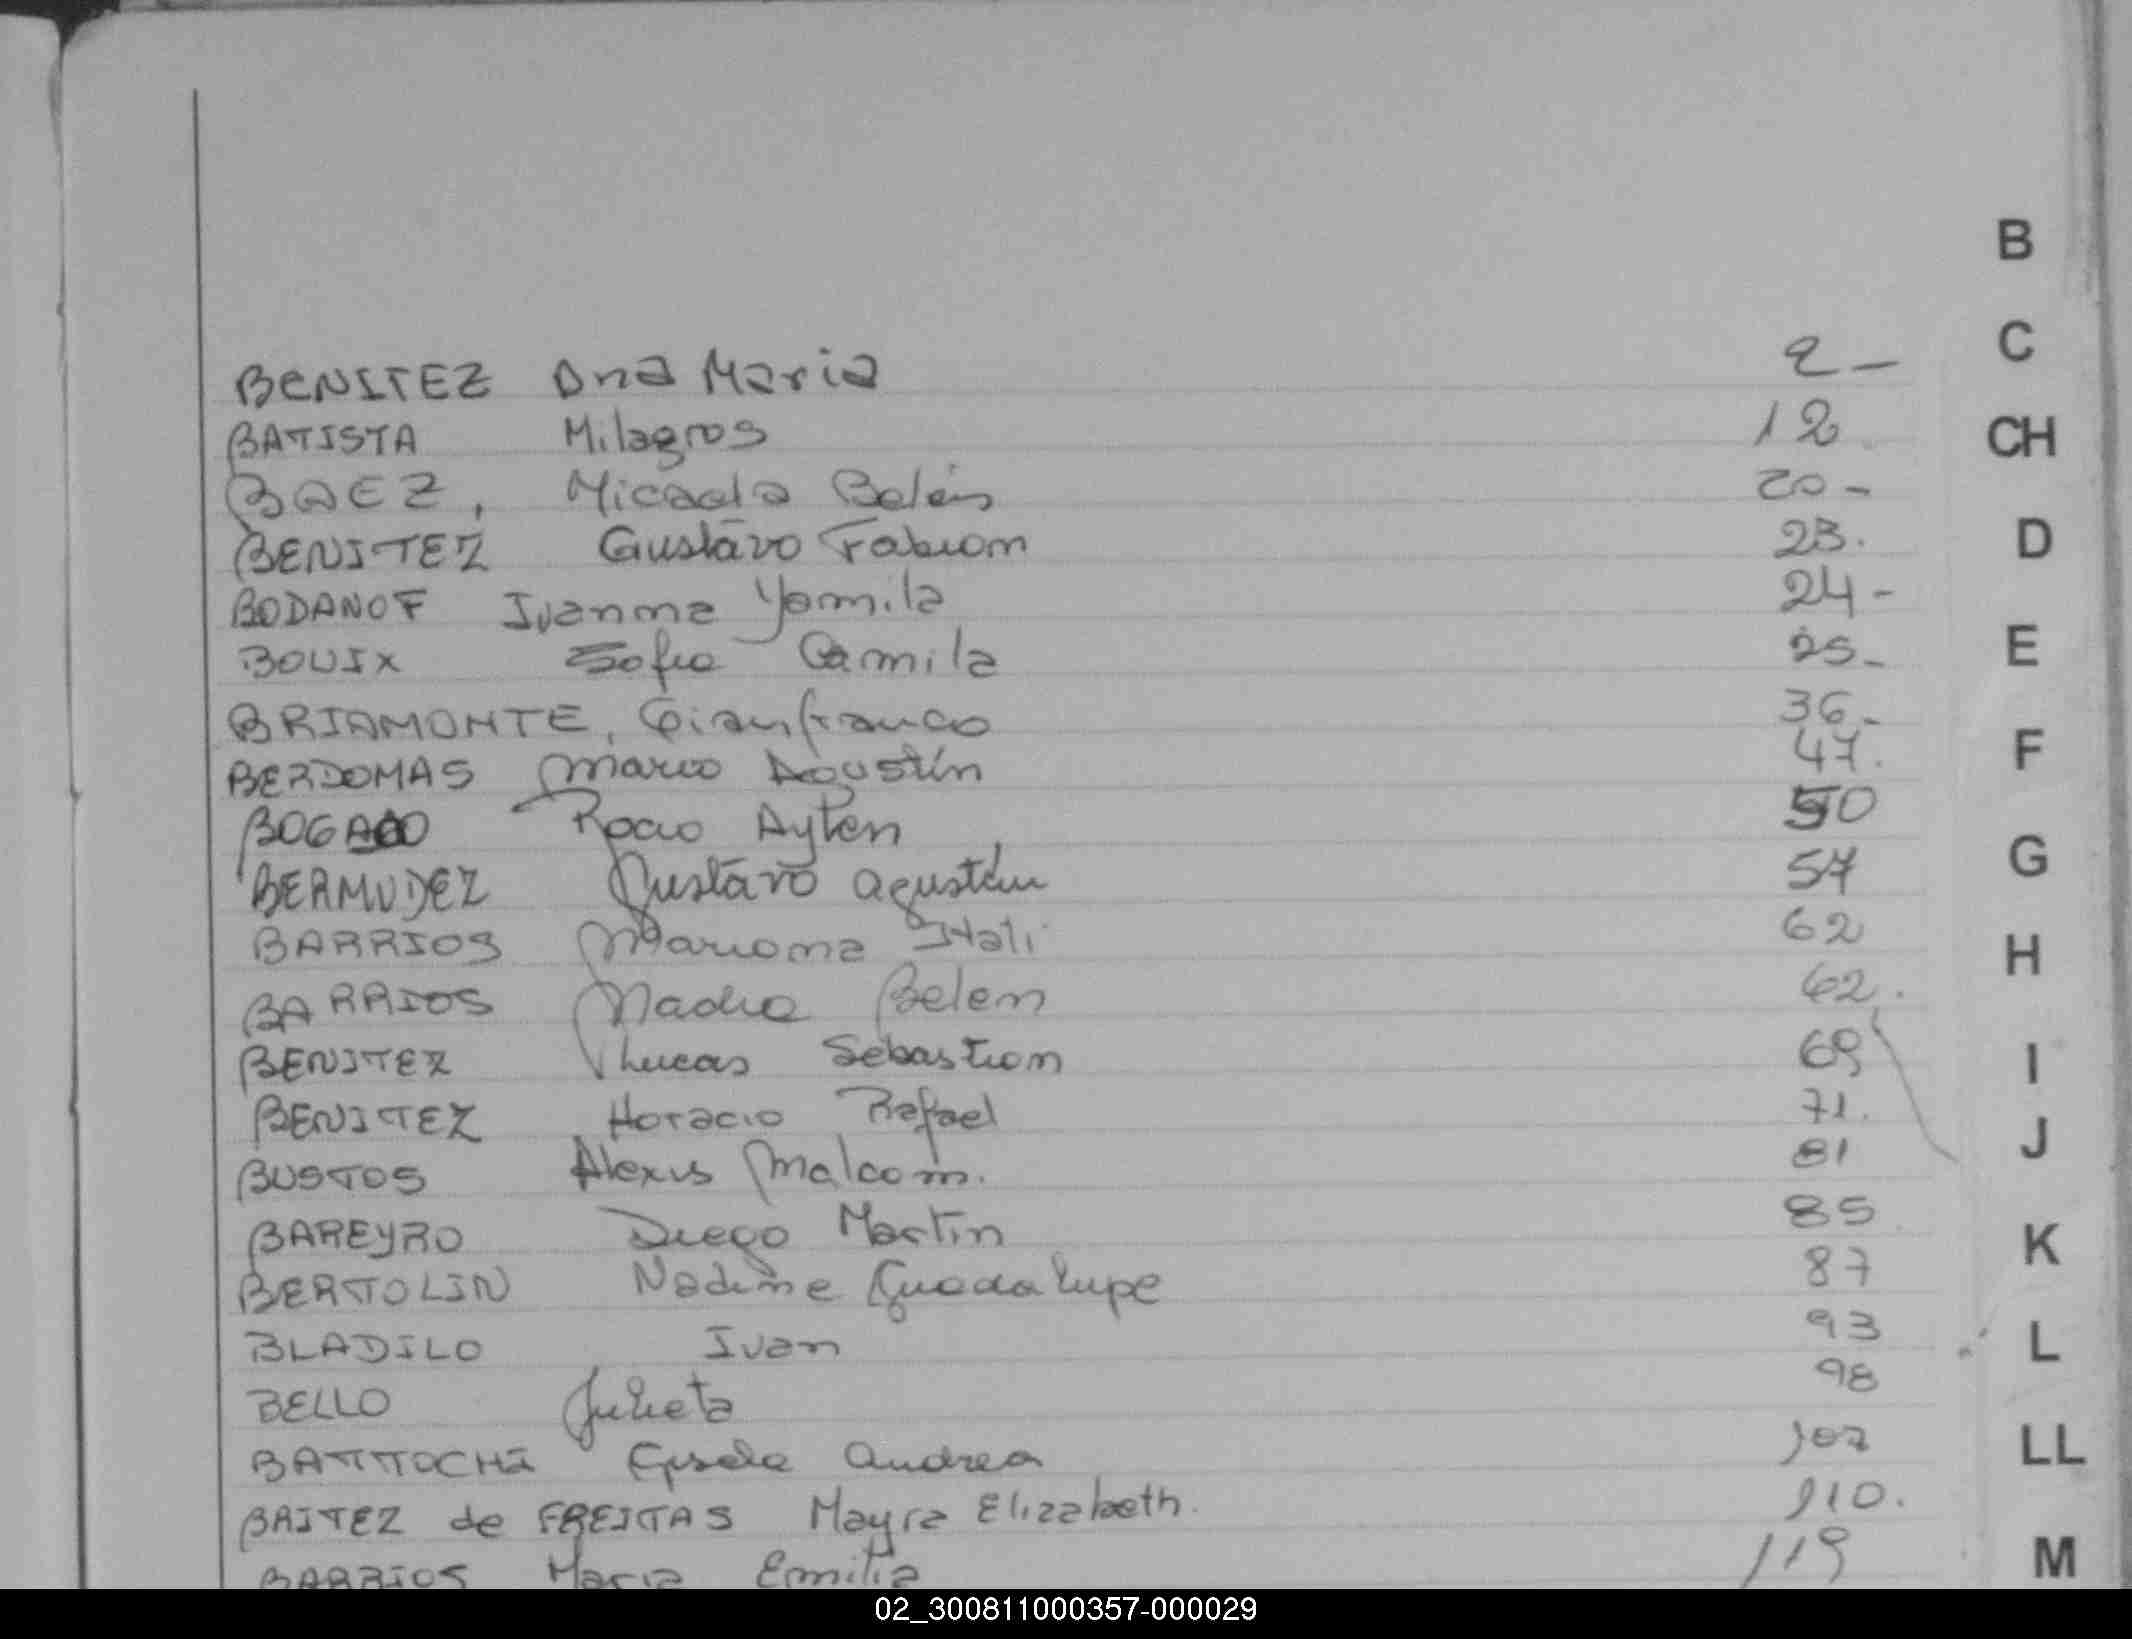 BENITEZ Ana Maria 2-
BATISTA Milagros 12
BAEZ, Micaela Belén 20-
BENITEZ Gustavo Fabian 23.
BODANOF Ivanna Yamila 24-
BOUIX Sofia Camila 25-
BRIAMONTE, Gianfranco 36-
BERDOMAS Marco Agustín 47.
BOGADO Rocio Aylen 50
BERMUDEZ Gustavo Agustín 57
BARRIOS Mariana Itati 62
BARRIOS Nadia Belen 62.
BENITEZ Lucas Sebastian 69
BENITEZ Horacio Rafael 71.
BUSTOS Alexis Malcom. 81
BAREYRO Diego Martin 85
BERTOLIN Nadine Guadalupe 87
BLADILO Ivan 93
BELLO Julieta 98
BATTOCHI Gisela Andrea 107
BAITEZ de FREITAS Mayra Elizabeth. 110.
BARRIOS Maria Emilia 119
B
C
CH
D
E
F
G
H
I
J
K
L
LL
M
02_300811000357-000029